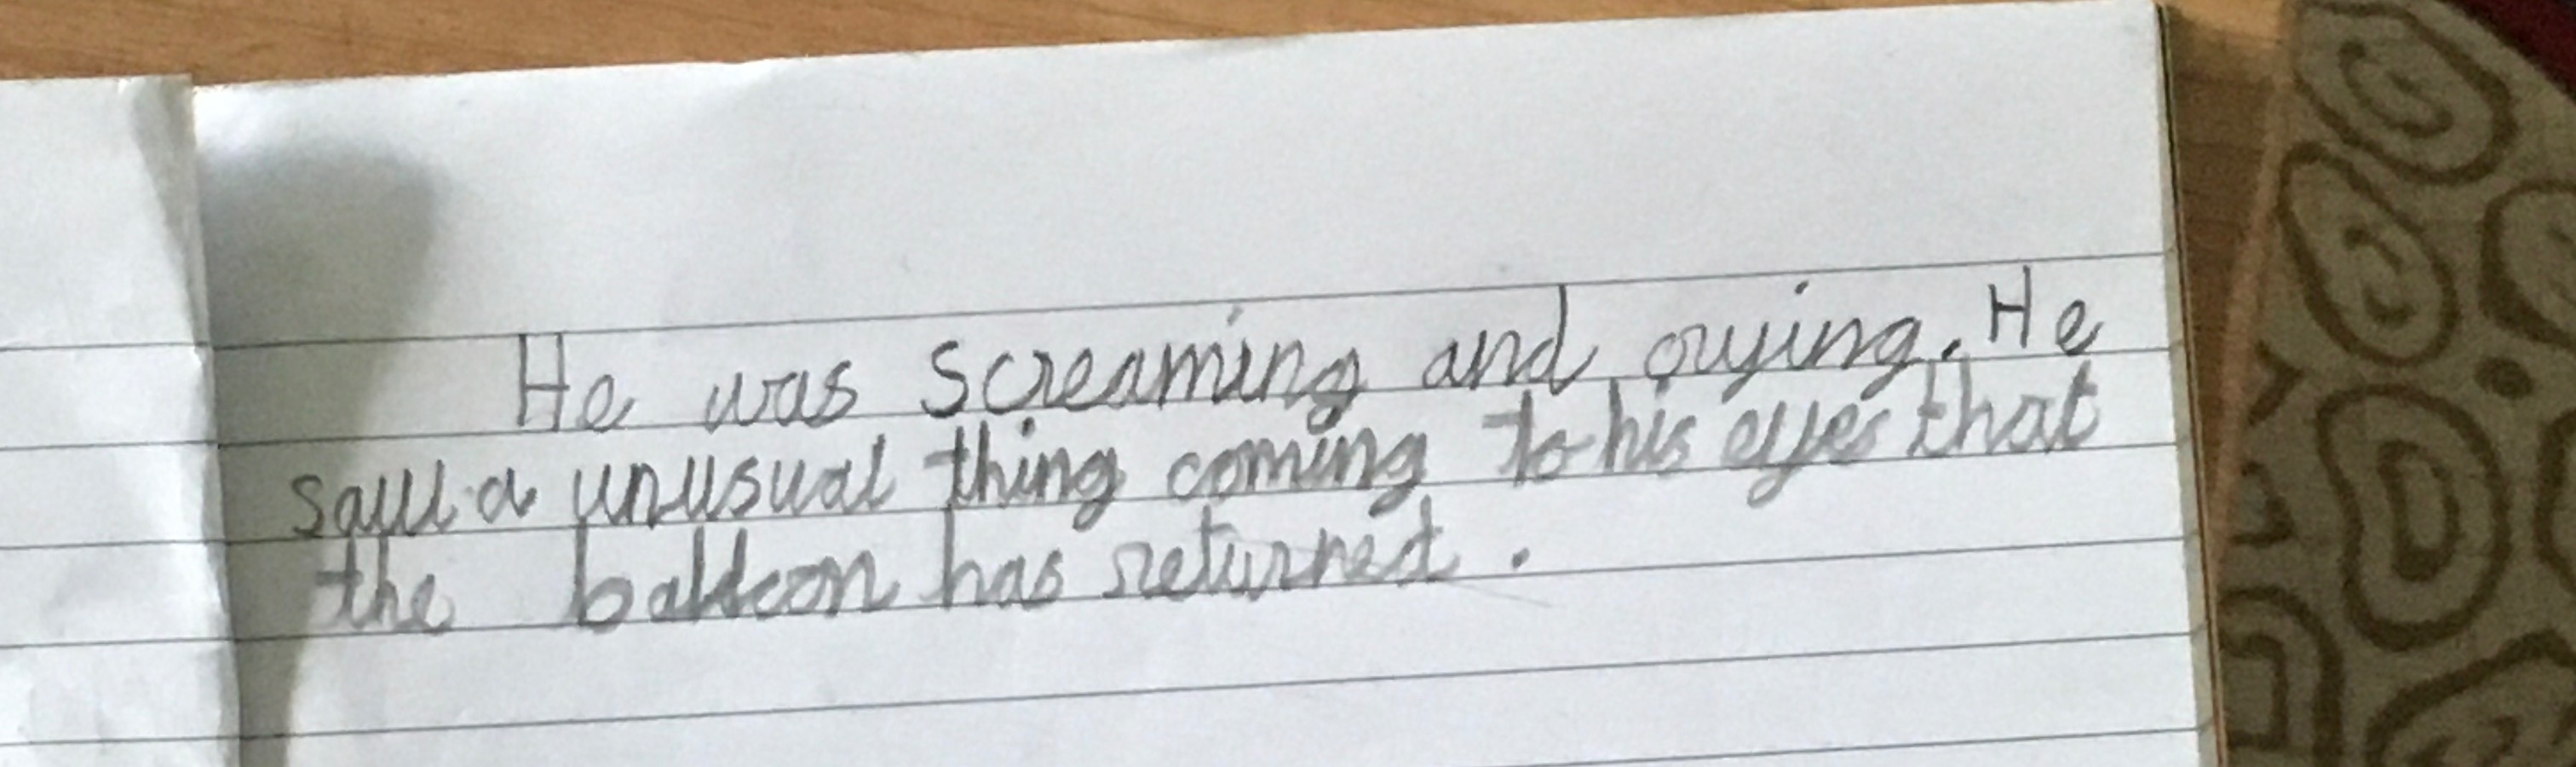 He was screaming and crying. He
saw a unusual thing coming to his eyes that
the balloon has returned.